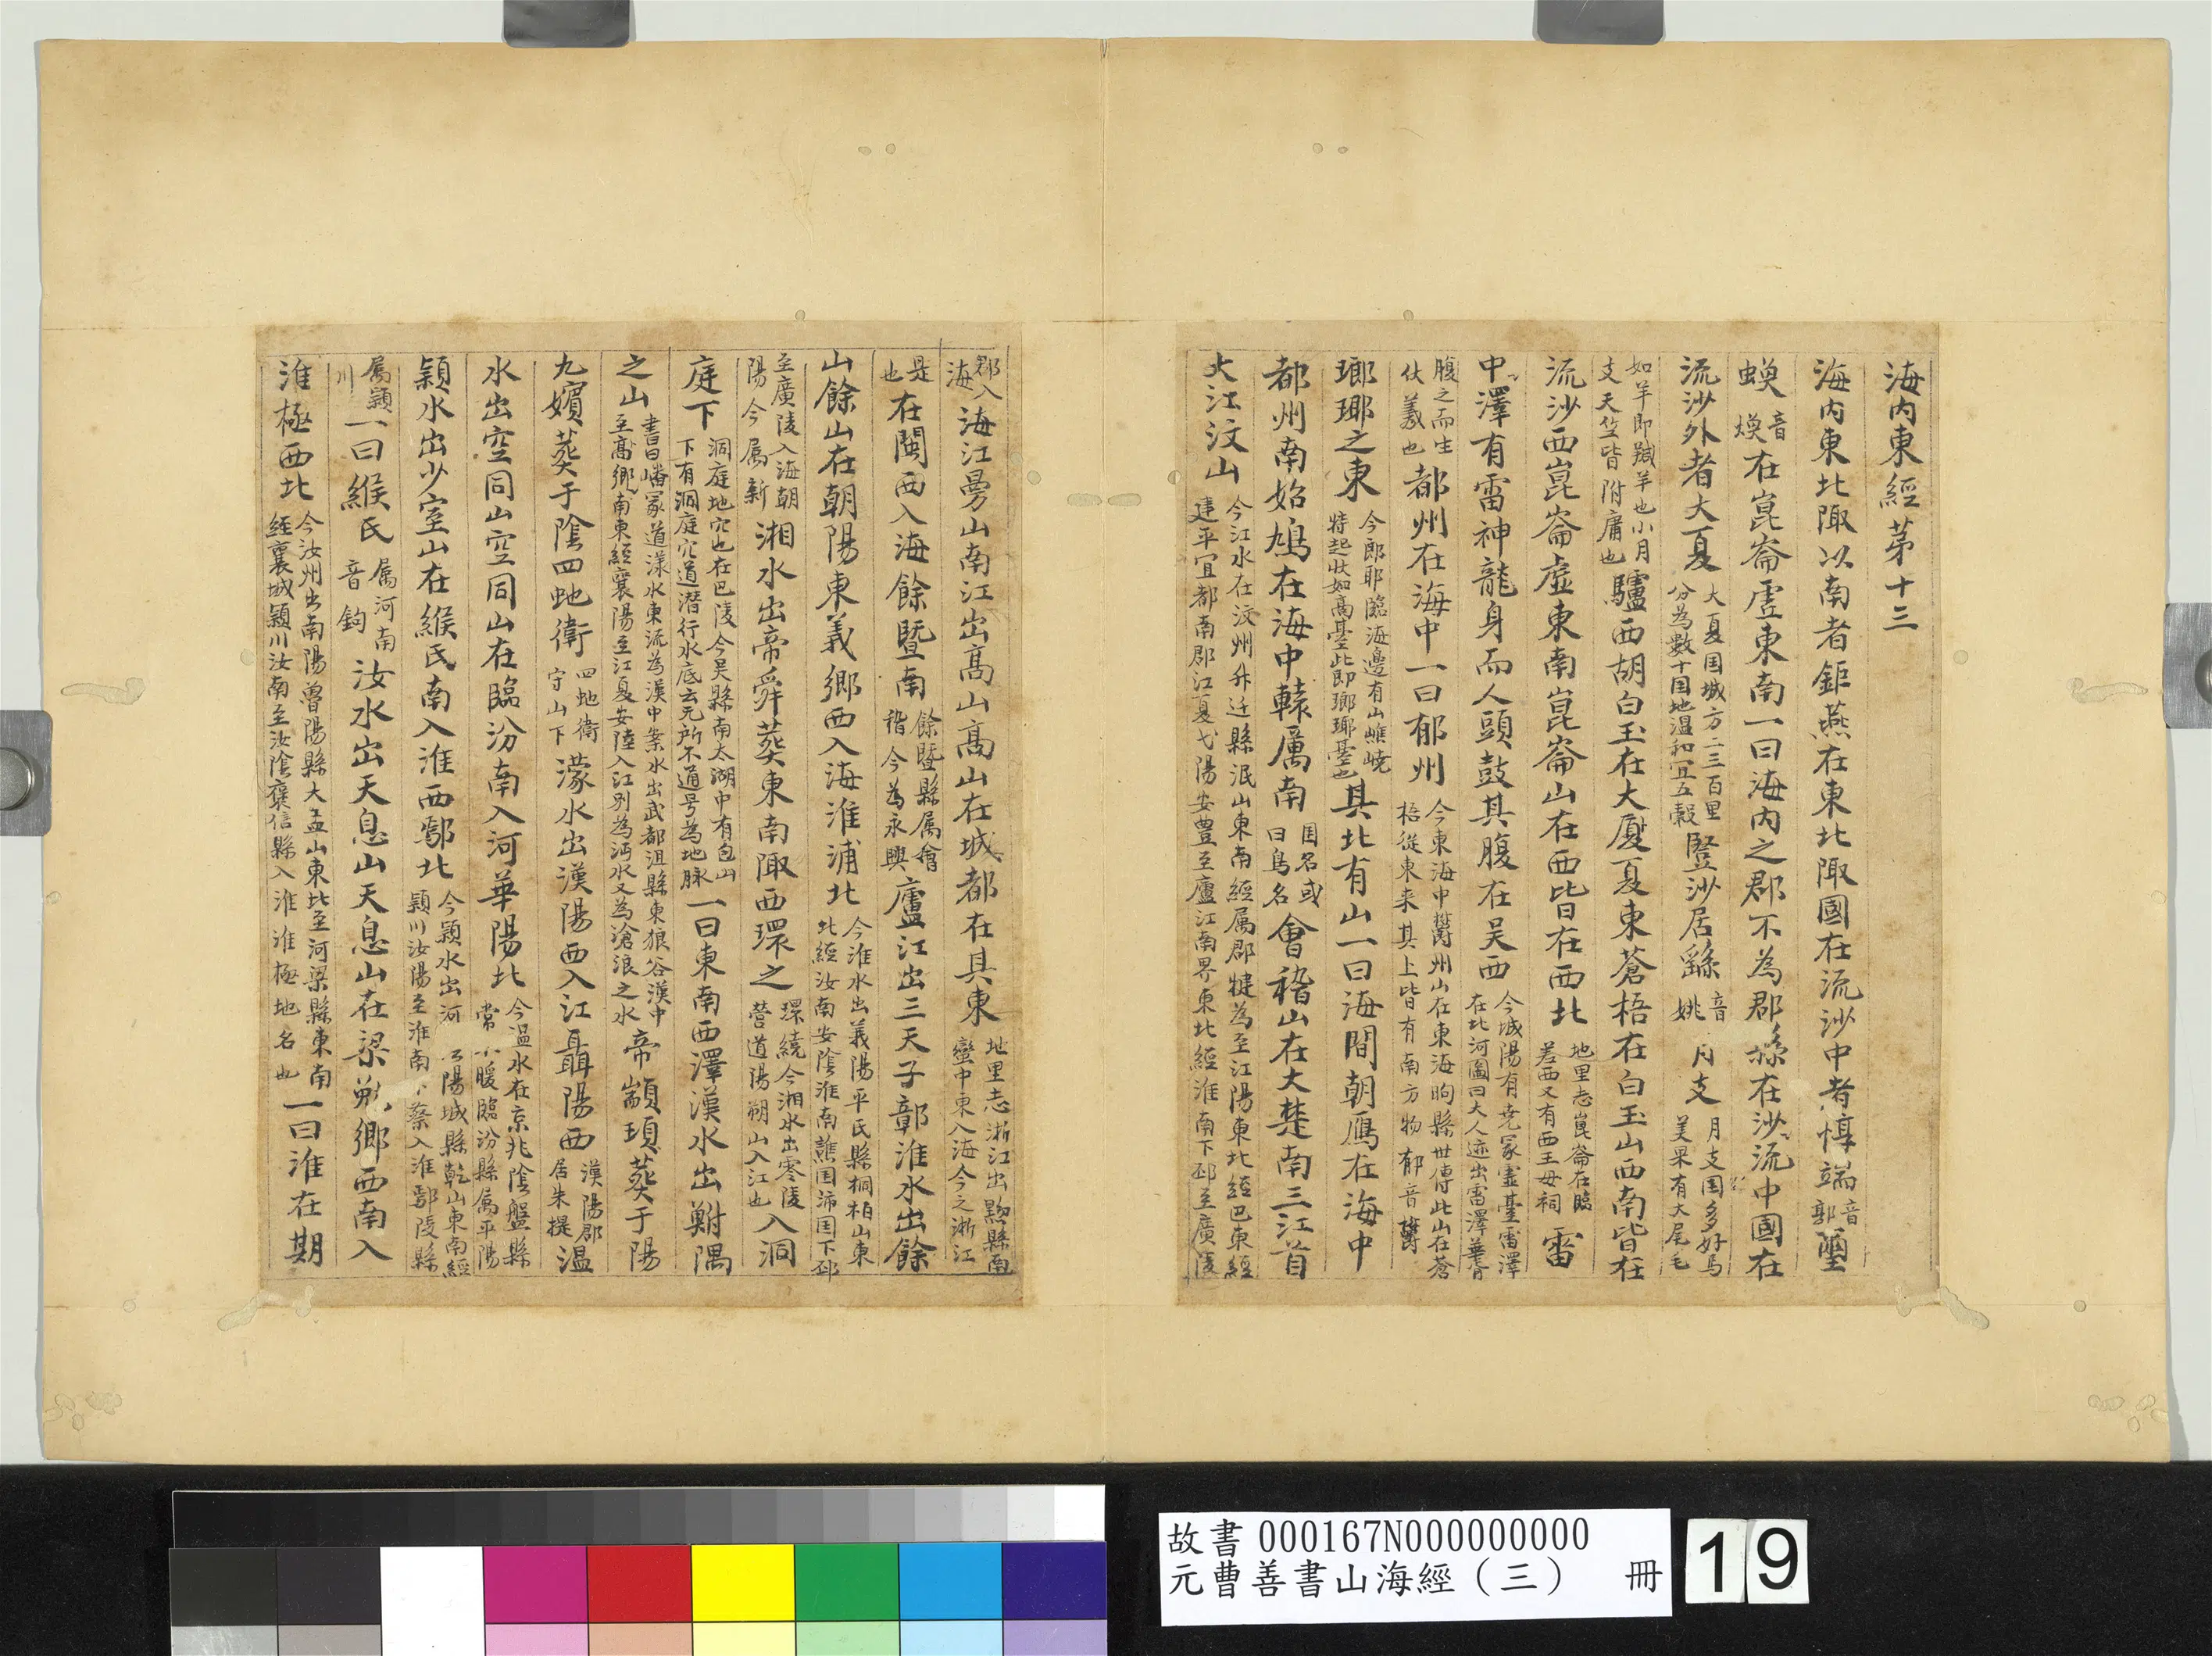 海內東經第十三
海內東北陬以南者鉅燕在東北陬國在流沙中者惇端音郭璽
㬇音煥在崑崙虛東南一曰海內之郡不為郡縣在沙流中國在
流沙外者大夏大夏国城方二三百里分為數十国地温和宜五穀豎沙居繇音姚月支月支国多好馬美果有大尾
如羊即羬羊也小月支天竺皆附庸也驢西胡白玉在大廈夏東蒼梧在白玉山西南皆在
流沙西崑崙虛東南崑崙山在西皆在西北地里志崑崙在臨羌西又有西王母祠雷
中澤有雷神龍身而人頭鼓其腹在吴西今城陽有尭冢靈臺雷澤在北河圖曰大人迹出雷澤華胥
腹之而生伏羲也都州在海中一曰郁州今東海中欝州山在東海朐縣世傳此山在蒼梧從東来其上皆有南方物郁音欝
瑯琊之東今郎耶臨海邊有山嶕嶢特起狀如高臺此即瑯琊臺也其北有山一曰海間朝鴈在海中
都州南始鳩在海中轅厲南国名或曰鳥名會稽山在大楚南三江首
大江汶山今江水在汶州升迁縣泯山東南經属郡犍為至江陽東北經巴東經建平宜都南郡江夏弋陽安豊至廬江南界東北經淮南下邳至廣陵
郡入海海江曼山南江出高山高山在城都在具東地里志浙江出黟縣南蠻中東入海今之浙江
是也在閩西入海餘暨南餘暨縣属會稽今為永興廬江出三天子鄣淮水出餘
山餘山在朝陽東義郷西入海淮浦北今淮水出義陽平氏縣桐柏山東北經汝南安陰淮南譙国沛国下邳
至廣陵入海朝陽今属新湘水出帝舜葬東南陬西環之環繞今湘水出零陵營道陽朔山入江也入洞
庭下洞庭地穴也在巴陵今吴縣南太湖中有包山下有洞庭穴道潛行水底云无所不通号為地脉一曰東南西澤漢水出鮒隅
之山書曰嶓冢道漾水東流為漢中案水出武都沮縣東狼谷漢中至高郷南東經襄陽至江夏安陸入江别為沔水又為滄浪之水帝顓頊葬于陽
九嬪葬于陰四虵衛四地衛守山下濛水出漢陽西入江聶陽西漢陽郡居朱提温
水出空同山空同山在臨汾南入河華陽北今温水在京兆陰盤縣常暖臨汾縣属平陽
潁水出少室山在緱氏南入淮西鄢北今潁水出河陽城縣乾山東南經潁川汝陽至淮南蔡入淮鄢陵縣
属潁川一曰緱氏属河南音鈎汝水出天息山天息山在梁郷西南入
淮極西北今汝州出南陽魯陽縣大盂山東北至河梁縣東南經襄城潁川汝南至汝陰襃信縣入淮淮極地名也一曰淮在期
故書 000167N000000000
元曹善書山海經（三） 冊 19